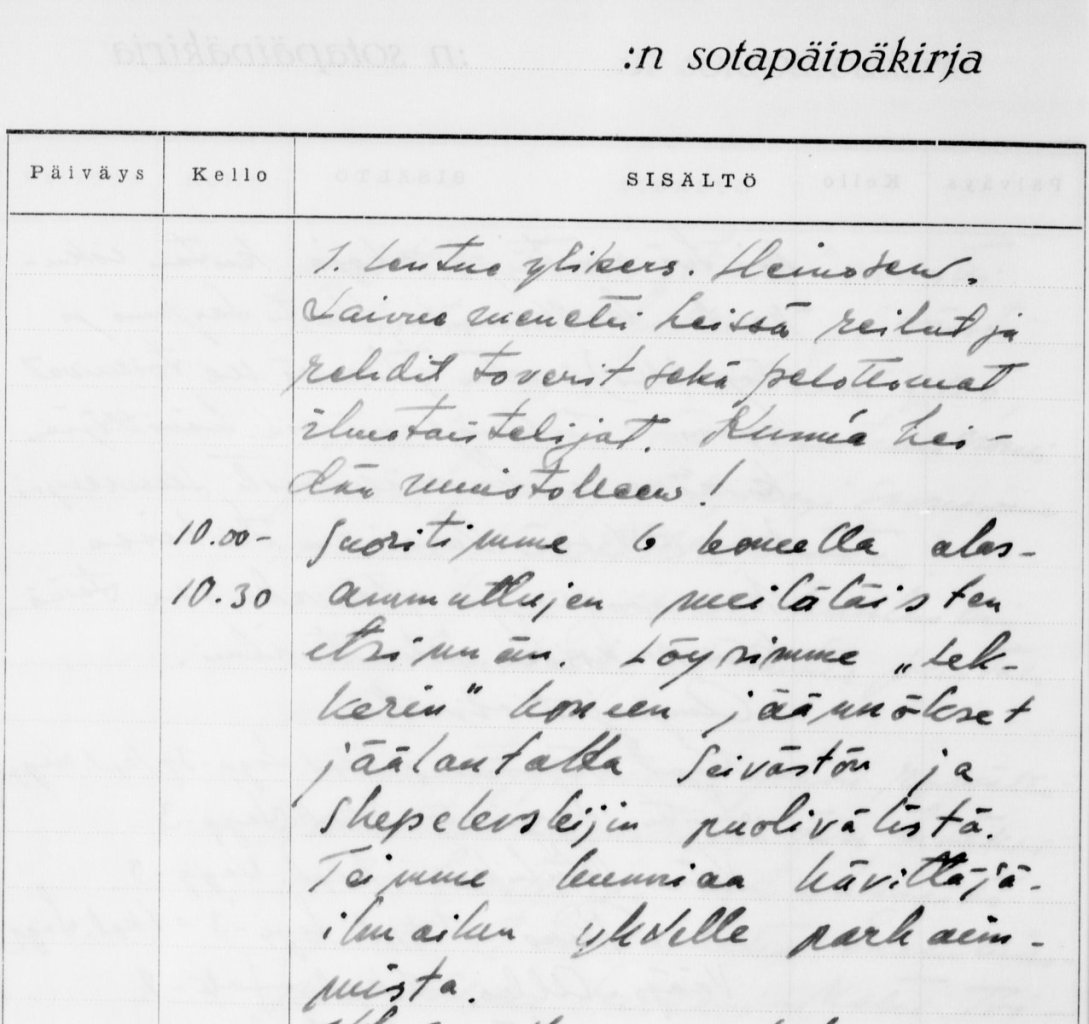 :n sotapäiväkirja
Päiväys Kello SISÄLTÖ
1. lentue ylikers. Heinosen.
Laivue menetti heissä reilut ja
rehdit toverit sekä pelottomat
ilmataistelijat. Kunnia hei-
dän muistolleen!
10.00- Suoritimme 6 koneella alas-
10.30 ammuttujen meikäläisten
etsinnän. Löysimme „Lek-
kerin" koneen jäännökset
jäälautalta Seivästön ja
Shepelevskijin puolivälistä.
Teimme kunniaa hävittäjä-
ilmailun yhdelle parhaim-
mista.